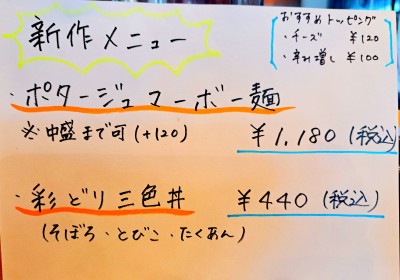 新作メニュー
おすすめトッピング
・チーズ ¥120
・辛み増し ¥100
・ポタージュマーボー麺
※中盛まで可(+120) ¥1,180(税込)
・彩どり三色丼 ¥440(税込)
(そぼろ・とびこ・たくあん)